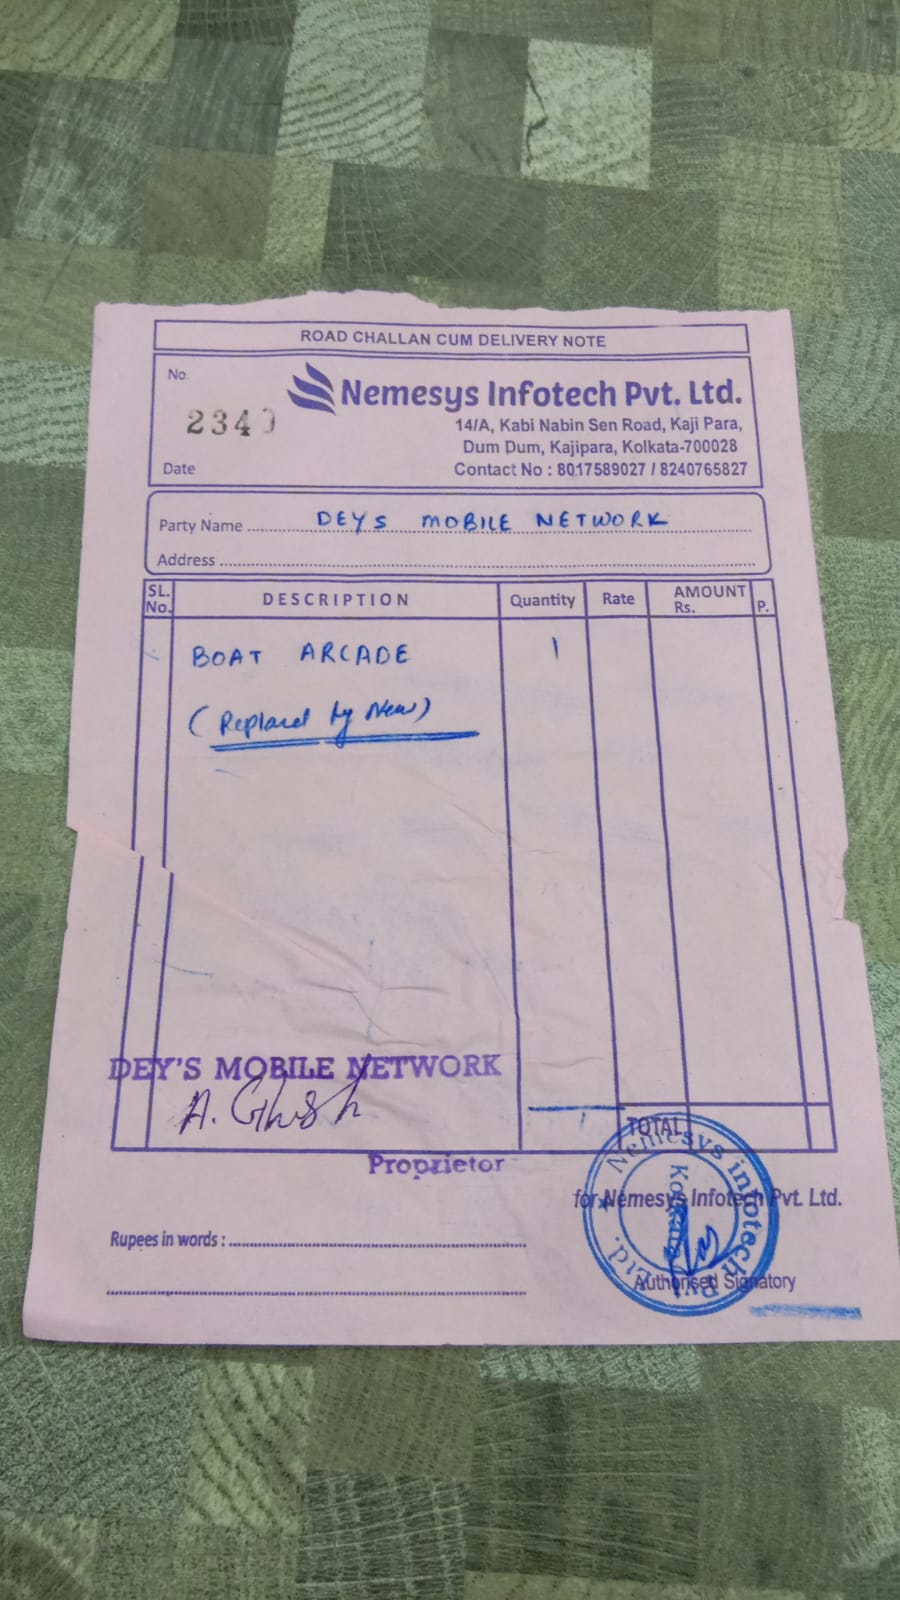 ROAD CHALLAN CUM DELIVERY NOTE
No.
Nemesys Infotech Pvt. Ltd.
234
14/A, Kabi Nabin Sen Road, Kaji Para,
Dum Dum, Kajipara, Kolkata-700028
Date
Contact No : 8017589027 / 8240765827
Party Name DEYS MOBILE NETWORK
Address
SL. No. DESCRIPTION Quantity Rate AMOUNT Rs. P.
BOAT ARCADE 1
(Replaced by New)
DEY'S MOBILE NETWORK
A. Ghosh
Proprietor
1 TOTAL
Nemesys infotech Pvt. Ltd.
Kolkata
for Nemesys Infotech Pvt. Ltd.
Rupees in words :
Authorised Signatory